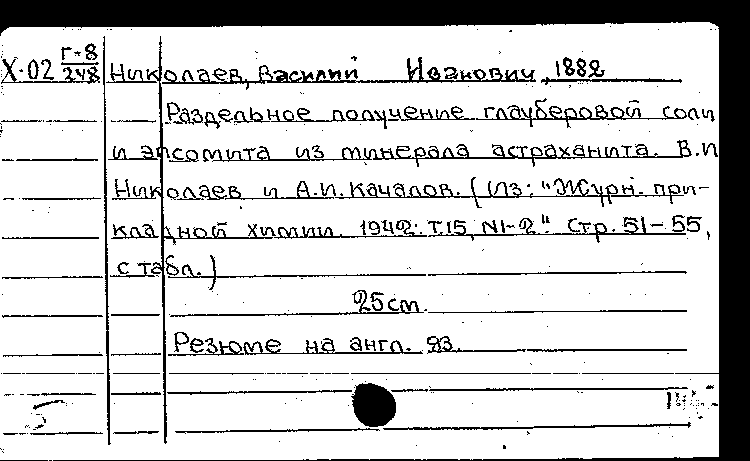 Х-02 Г-8/248 Николаев, Василий Иванович, 1882
Раздельное получение глауберовой соли
и эпсомита из минерала астраханита. В.И
Николаев и А.И. Качалов. (Из: "Журн. при-
кладной химии. 1942: Т.15, N1-2". Стр. 51-55,
с табл.)
25 cm.
Резюме на англ. яз.
5